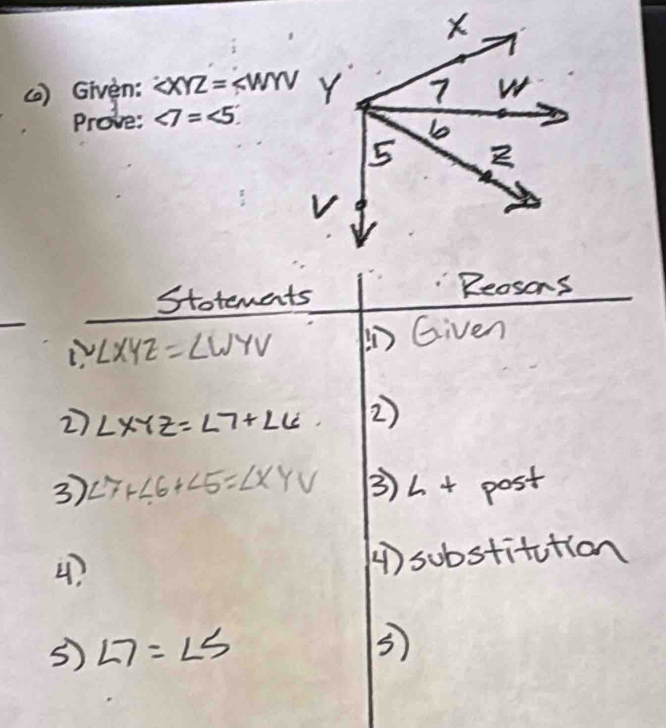 6) Given: <XYZ = <WYV
Prove: <7 = <5
X
Y
7
W
6
5
Z
V
Statements Reasons
1) ∠XYZ = ∠WYV 1) Given
2) ∠XYZ = ∠7 + ∠6 2)
3) ∠7 + ∠6 + ∠5 = ∠XYV 3) ∠ + post
4) 4) substitution
5) ∠7 = ∠5 5)